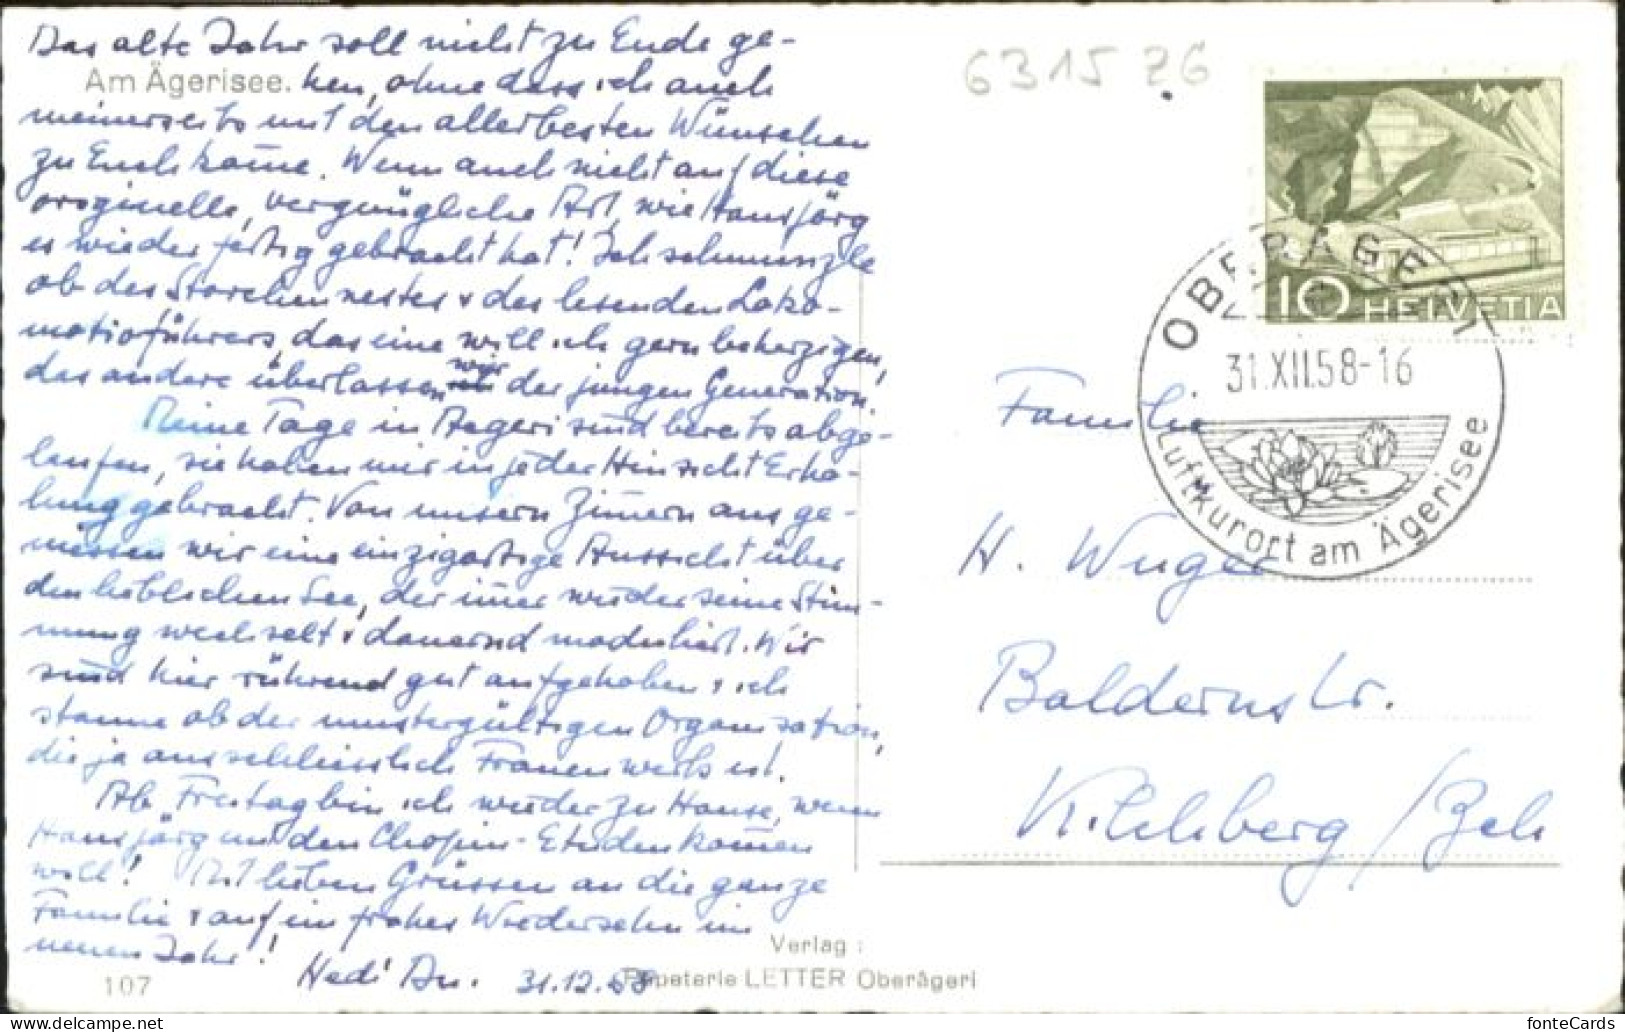 Das alte Jahr soll nicht zu Ende ge-
Am Ägerisee. hen, ohne dass ich auch
meinerseits mit den allerbesten Wünschen
zu Euch kom̄e. Wenn auch nicht auf diese
originelle, vergnügliche Art, wie Hansjörg
es wieder fertig gebracht hat! Ich schmunzle
ob des Storchennestes & des lesenden Loko-
motivführers, das eine will ich gern beherzigen,
das andere überlassen wir der jungen Generation.
Meine Tage in Aegeri sind bereits abge-
laufen, sie haben mir in jeder Hinsicht Erho-
lung gebracht. Von unsern Zim̄ern aus ge-
niessen wir eine einzigartige Aussicht über
den lieblichen See, der im̄er wieder seine Stim-
mung wechselt & dauernd moduliert. Wir
sind hier rührend gut aufgehoben & ich
staune ob der mustergültigen Organisation,
die ja ausschliesslich Frauenwerk ist.
Ab Freitag bin ich wieder zu Hause, wenn
Hansjörg um den Chopin-Etuden kom̄en
will! Mit lieben Grüssen an die ganze
Familie & auf ein frohes Wiedersehn im
neuen Jahr!
Hedi 31.12.58
107
Verlag:
Papeterie LETTER Oberägeri
6315 Z6
10 HELVETIA
OBERÄGERI
31.XII.58-16
Luftkurort am Ägerisee
Familie
H. Wuger
Baldernstr.
Kilchberg / Zch
fonteCards